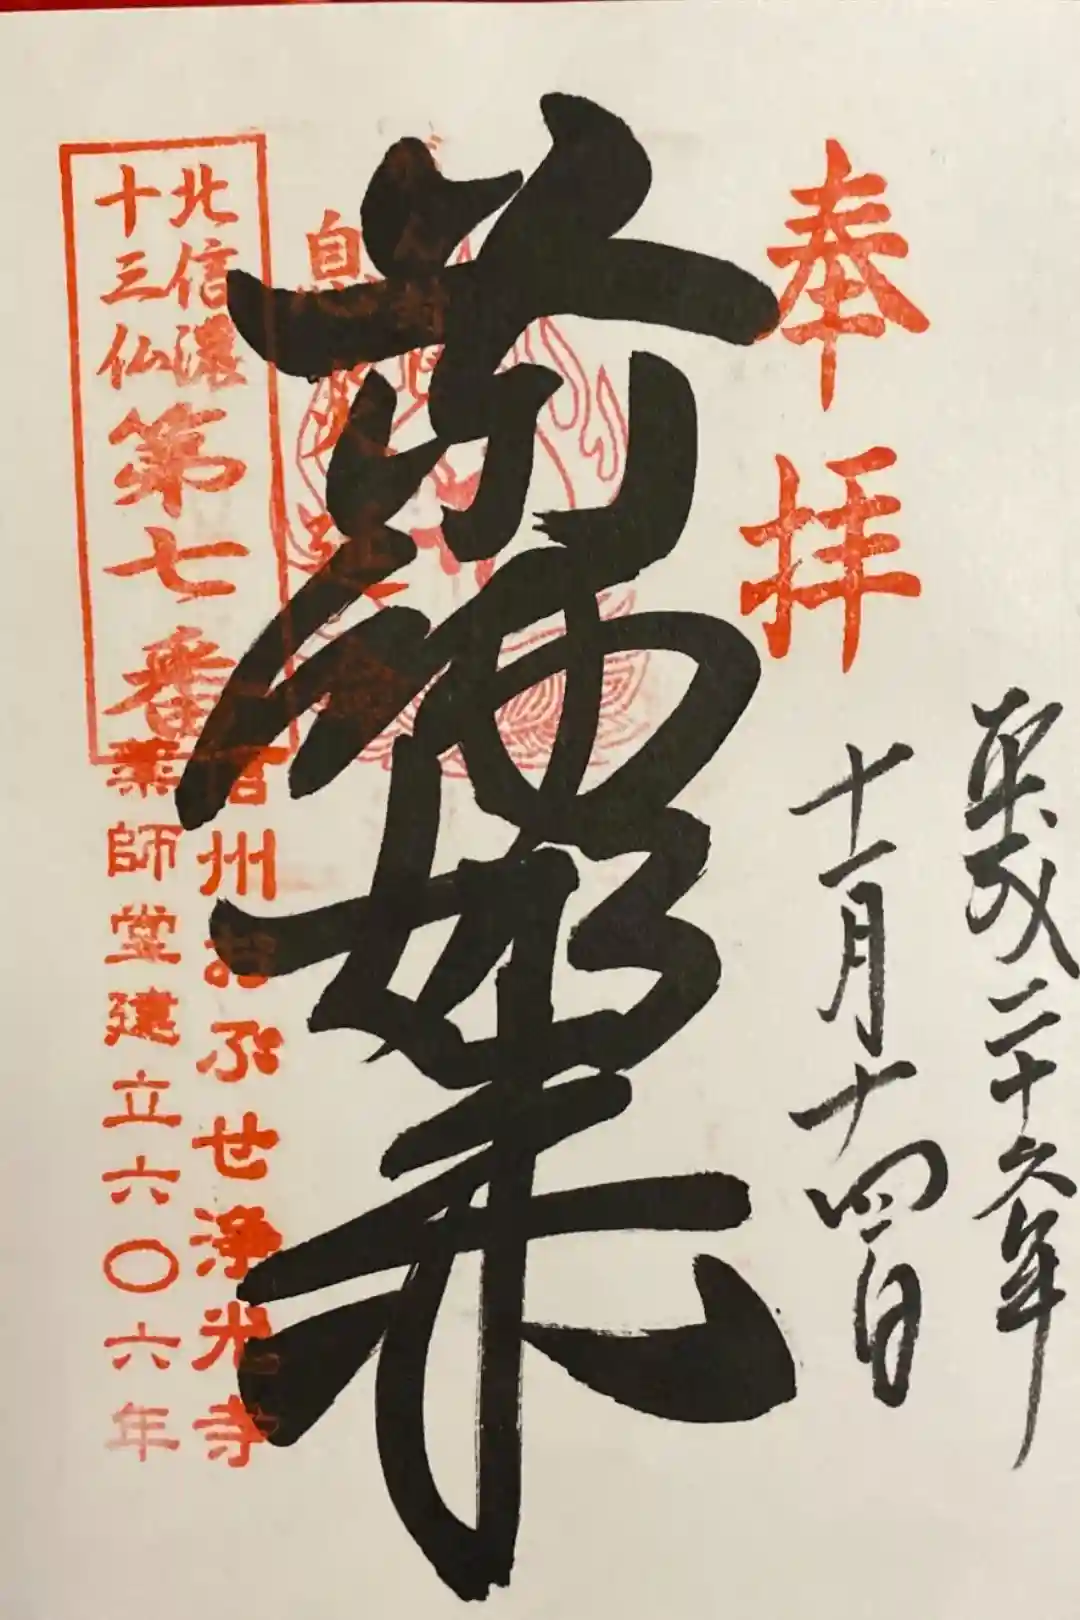 平成二十六年
十一月十四日
奉拝
薬師如来
北信濃
十三仏
第七番
信州おぶせ浄光寺
薬師堂建立六〇六年